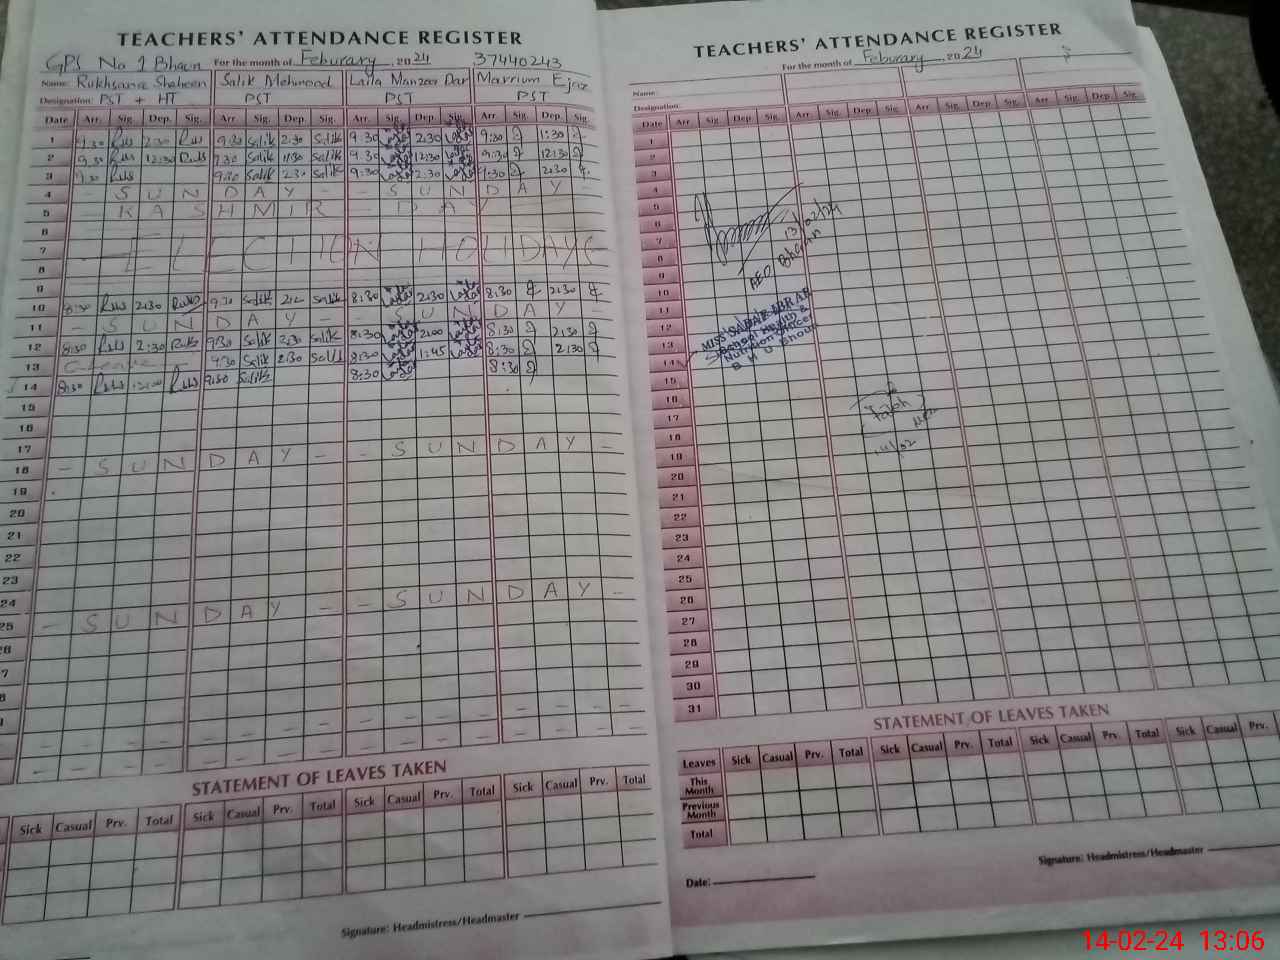 TEACHERS' ATTENDANCE REGISTER
GPS No 1 Bhaun For the month of Feburary, 2024 37440243
Name: Rukhsana Shaheen Salik Mehmood Laila Manzoor Dar Marrium Ejaz
Designation: PST + HT PST PST PST
Date Arr. Sig. Dep. Sig. Arr. Sig. Dep. Sig. Arr. Sig. Dep. Sig. Arr. Sig. Dep. Sig.
1 9:30 2:30 9:30 Salik 2:30 Salik 9:30 2:30 9:30 1:30
2 9:30 12:30 9:30 Salik Salik 9:30 12:30 9:30 12:30
3 9:30 9:30 Salik 2:30 Salik 9:30 2:30 9:30 2:30
4 - SUNDAY - - SUNDAY -
5 - KASHMIR - DAY
6
7 ELECTION HOLIDAYS
8
9
10 8:30 2:30 Salik Salik 8:30 2:30 8:30 2:30
11 - SUNDAY - - SUNDAY -
12 8:30 2:30 9:30 Salik 2:30 Salik 8:30 2:00 8:30 2:30
13 9:30 Salik 2:30 Salik 8:30 1:45 8:30 2:30
14 8:30 9:30 Salik 8:30 8:30
15
16
17
18 - SUNDAY - - SUNDAY -
19
20
21
22
23
24
25 - SUNDAY - - SUNDAY -
STATEMENT OF LEAVES TAKEN
Sick Casual Prv. Total Sick Casual Prv. Total Sick Casual Prv. Total Sick Casual Prv. Total
Signature: Headmistress/Headmaster
TEACHERS' ATTENDANCE REGISTER
For the month of Feburary, 2024
Name:
Designation:
Date Arr. Sig. Dep. Sig. Arr. Sig. Dep. Sig. Arr. Sig. Dep. Sig. Arr. Sig. Dep. Sig.
1
2
3
4
5
6
7
8
9
10
11
12
13
14
15
16
17
18
19
20
21
22
23
24
25
26
27
28
29
30
31
13/02/24
AEO Bhaun
MISS SABA IBRAR
School Health &
Nutrition Officer
B H U Bhaun
14/02
STATEMENT OF LEAVES TAKEN
Leaves Sick Casual Prv. Total Sick Casual Prv. Total Sick Casual Prv. Total Sick Casual Prv.
This Month
Previous Month
Total
Signature: Headmistress/Headmaster
Date:
14-02-24 13:06